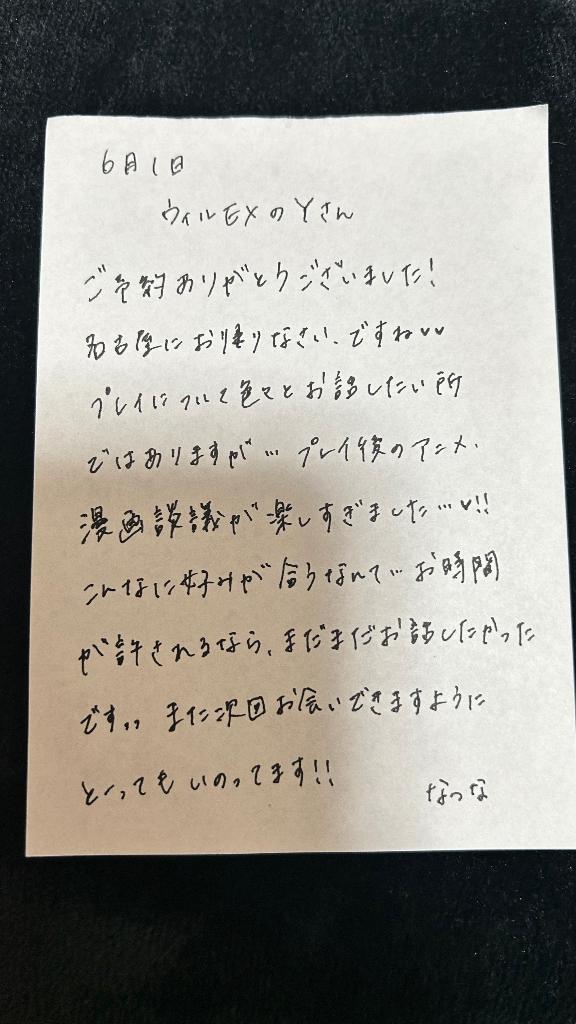 6月1日
ウィルEXのYさん
ご予約ありがとうございました!
名古屋にお帰りなさい、ですね♥♥
プレイについて色々とお話したい所
ではありますが… プレイ後のアニメ、
漫画談議が楽しすぎました…♥!!
こんなに好みが合うなんて… お時間
が許されるなら、まだまだお話したかった
です,, また次回お会いできますように
とってもいのってます!!
なつな